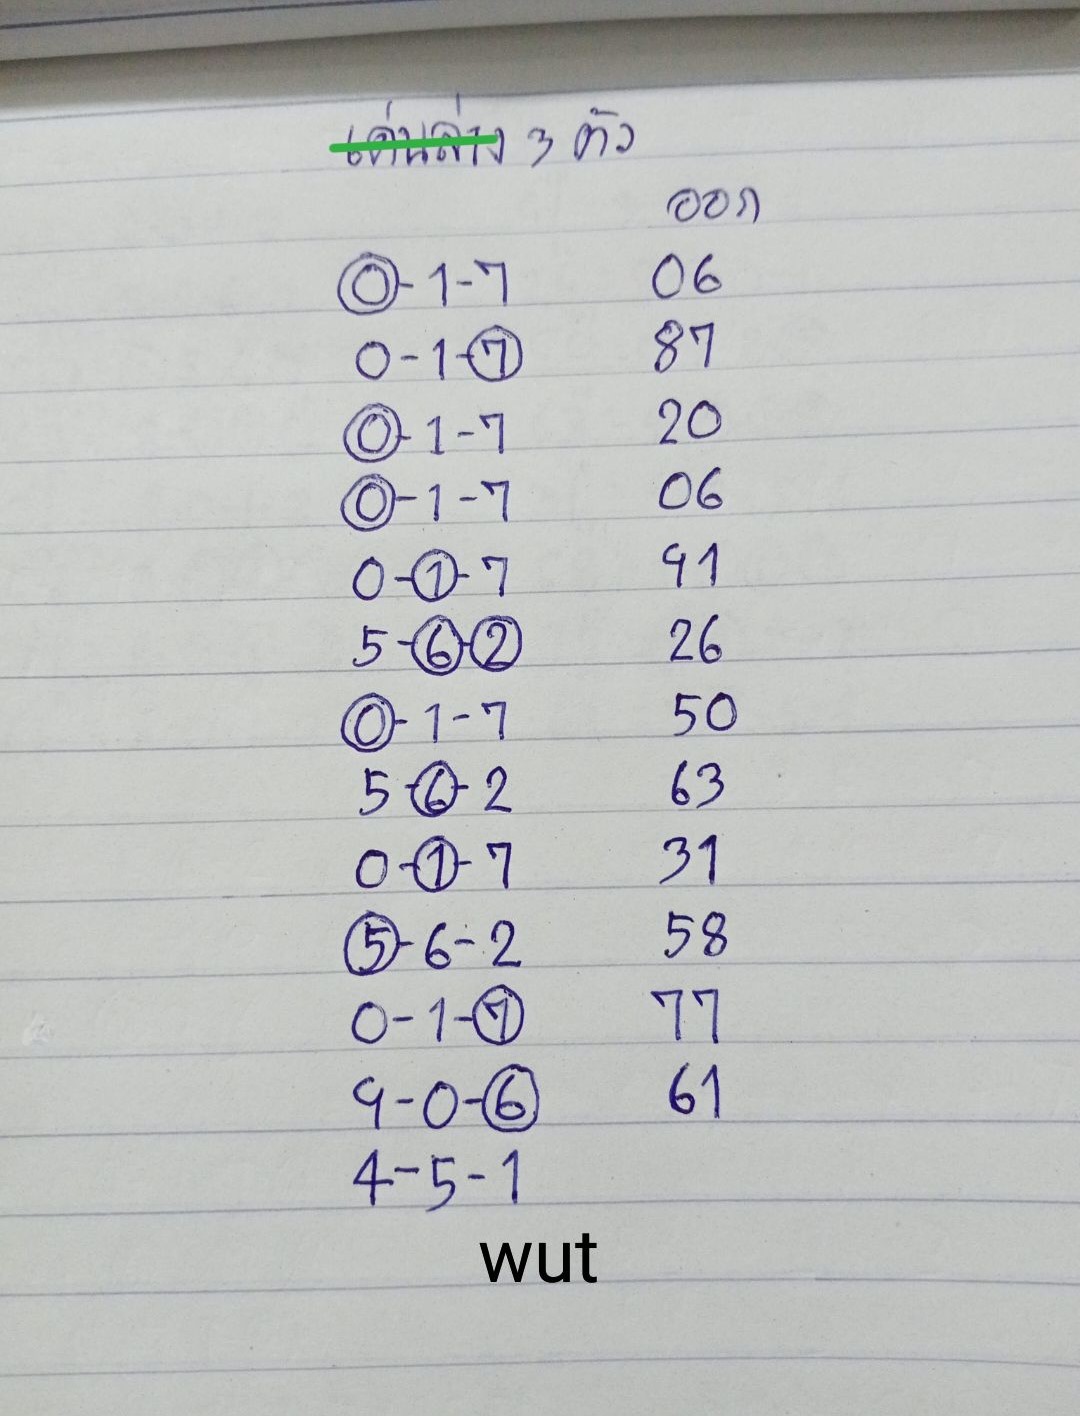 เด่นล่าง 3 ตัว
ออก
0-1-7 06
0-1-7 87
0-1-7 20
0-1-7 06
0-1-7 91
5-6-2 26
0-1-7 50
5-6-2 63
0-1-7 31
5-6-2 58
0-1-7 77
9-0-6 61
4-5-1
wut